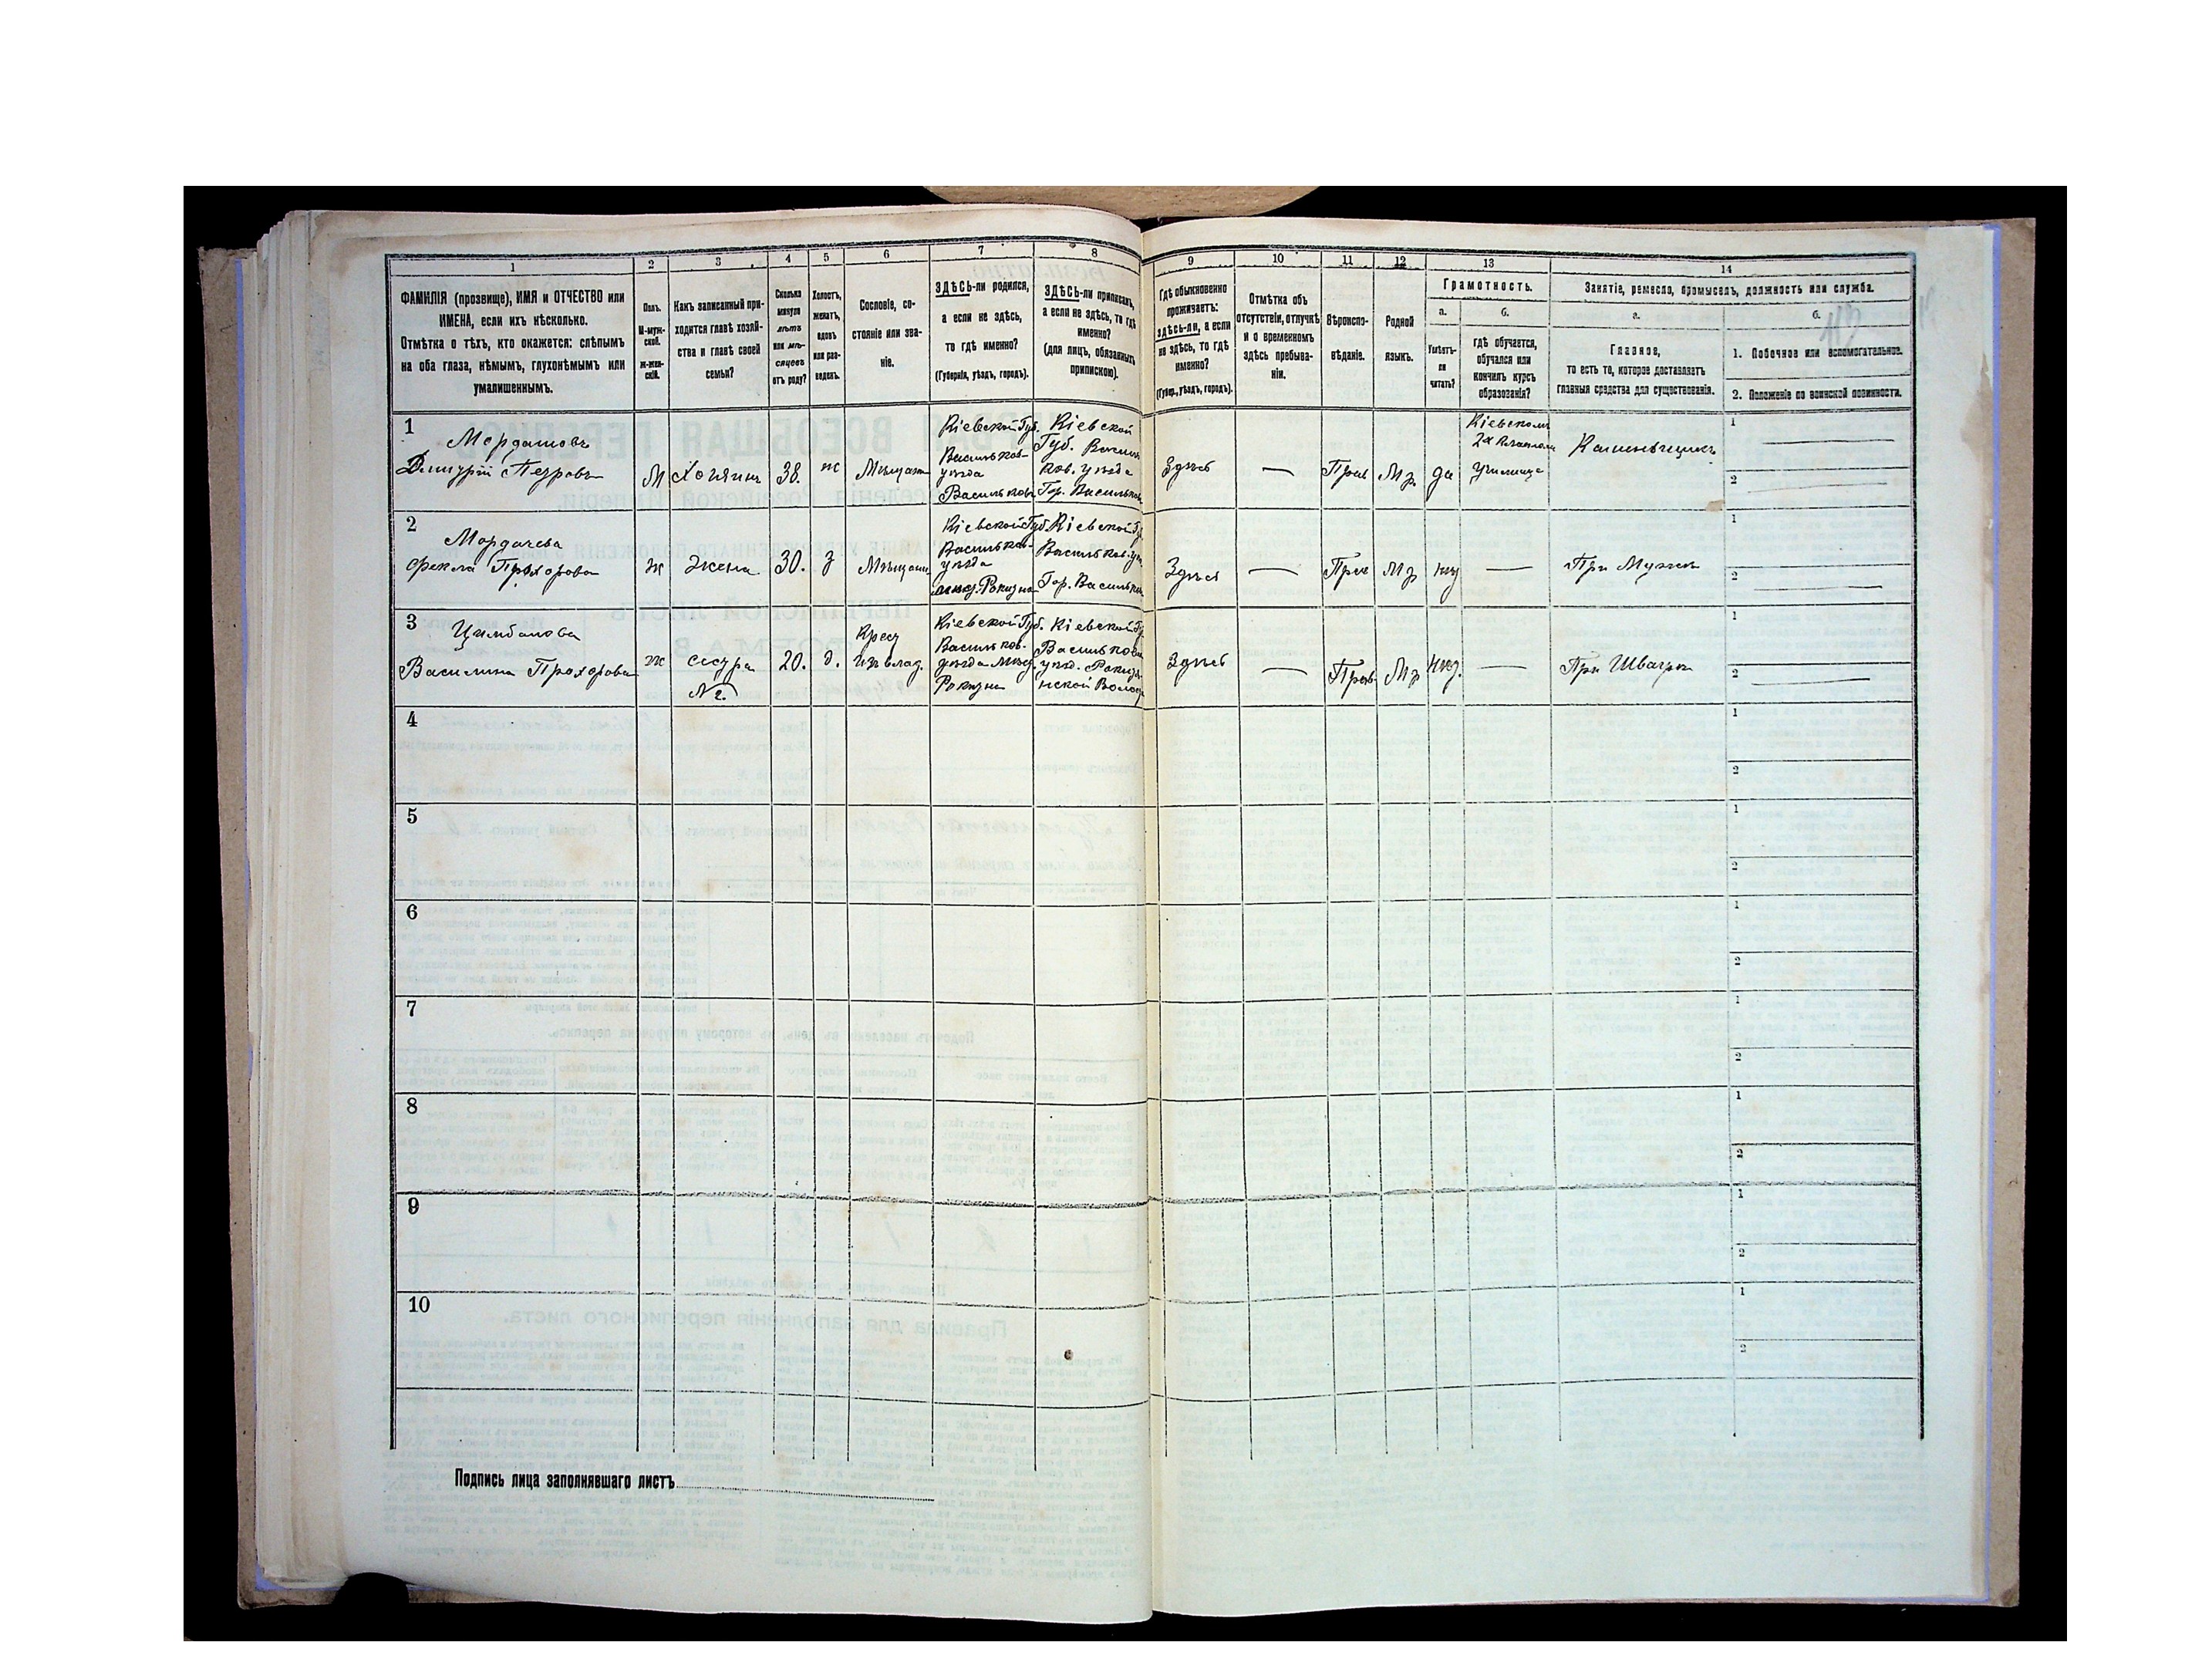 1 2 3 4 5 6 7 8 9 10 11 12 13 14
ФАМИЛІЯ (прозвище), ИМЯ и ОТЧЕСТВО или
ИМЕНА, если ихъ нѣсколько.
Отмѣтка о тѣхъ, кто окажется: слѣпымъ
на оба глаза, нѣмымъ, глухонѣмымъ или
умалишеннымъ.
Полъ.
М-муж-
ской.
ж-жен-
скій.
Какъ записанный при-
ходится главѣ хозяй-
ства и главѣ своей
семьи?
Сколько
минуло
лѣтъ
или мѣ-
сяцевъ
отъ роду?
Холостъ,
женатъ,
вдовъ
или раз-
веденъ.
Сословіе, со-
стояніе или зва-
ніе.
ЗДѢСЬ-ли родился,
а если не здѣсь,
то гдѣ именно?
(Губернія, уѣздъ, городъ).
ЗДѢСЬ-ли приписанъ,
а если не здѣсь, то гдѣ
именно?
(для лицъ, обязанныхъ
припискою).
Гдѣ обыкновенно
проживаетъ:
здѣсь-ли, а если
не здѣсь, то гдѣ
именно?
(Губер., уѣздъ, городъ).
Отмѣтка объ
отсутствіи, отлучкѣ
и о временномъ
здѣсь пребыва-
ніи.
Вѣроиспо-
вѣданіе.
Родной
языкъ.
Грамотность.
а.
Умѣетъ-
ли
читать?
б.
гдѣ обучается,
обучался или
кончилъ курсъ
образованія?
Занятіе, ремесло, промыселъ, должность или служба.
а.
Главное,
то есть то, которое доставляетъ
главныя средства для существованія.
б.
1. Побочное или вспомогательное.
2. Положеніе по воинской повинности.
1
Дмитрій Петровъ
М
Хозяинъ
38.
ж
Кіевской Губ.
Васильков-
уѣзда
Кіевской
Губ. Василь
ков. уѣзда
Гор. Васильков
Здѣсь
—
Прав
Мр
да
Кіевскомъ
училище
Каменьщикъ
1
2
2
Фекла Прохорова
ж
Жена
30.
З
Кіевской Губ.
Васильков-
уѣзда
Кіевской Гу
Гор. Васильков
Здѣсь
—
Мр
нѣт
—
При Мужѣ
1
2
3
Цимбалова
Василина Прохорова
ж
сестра
№ 2.
20.
д.
Крест
изъ влад.
Кіевской Губ.
Васильков-
уѣзда мѣст
Рокизна
Кіевской Гу
Здѣсь
—
Прав
Мр
нѣт.
—
При Швагрѣ
1
2
4
1
2
5
1
2
6
1
2
7
1
2
8
1
2
9
1
2
10
1
2
Подпись лица заполнявшаго листъ